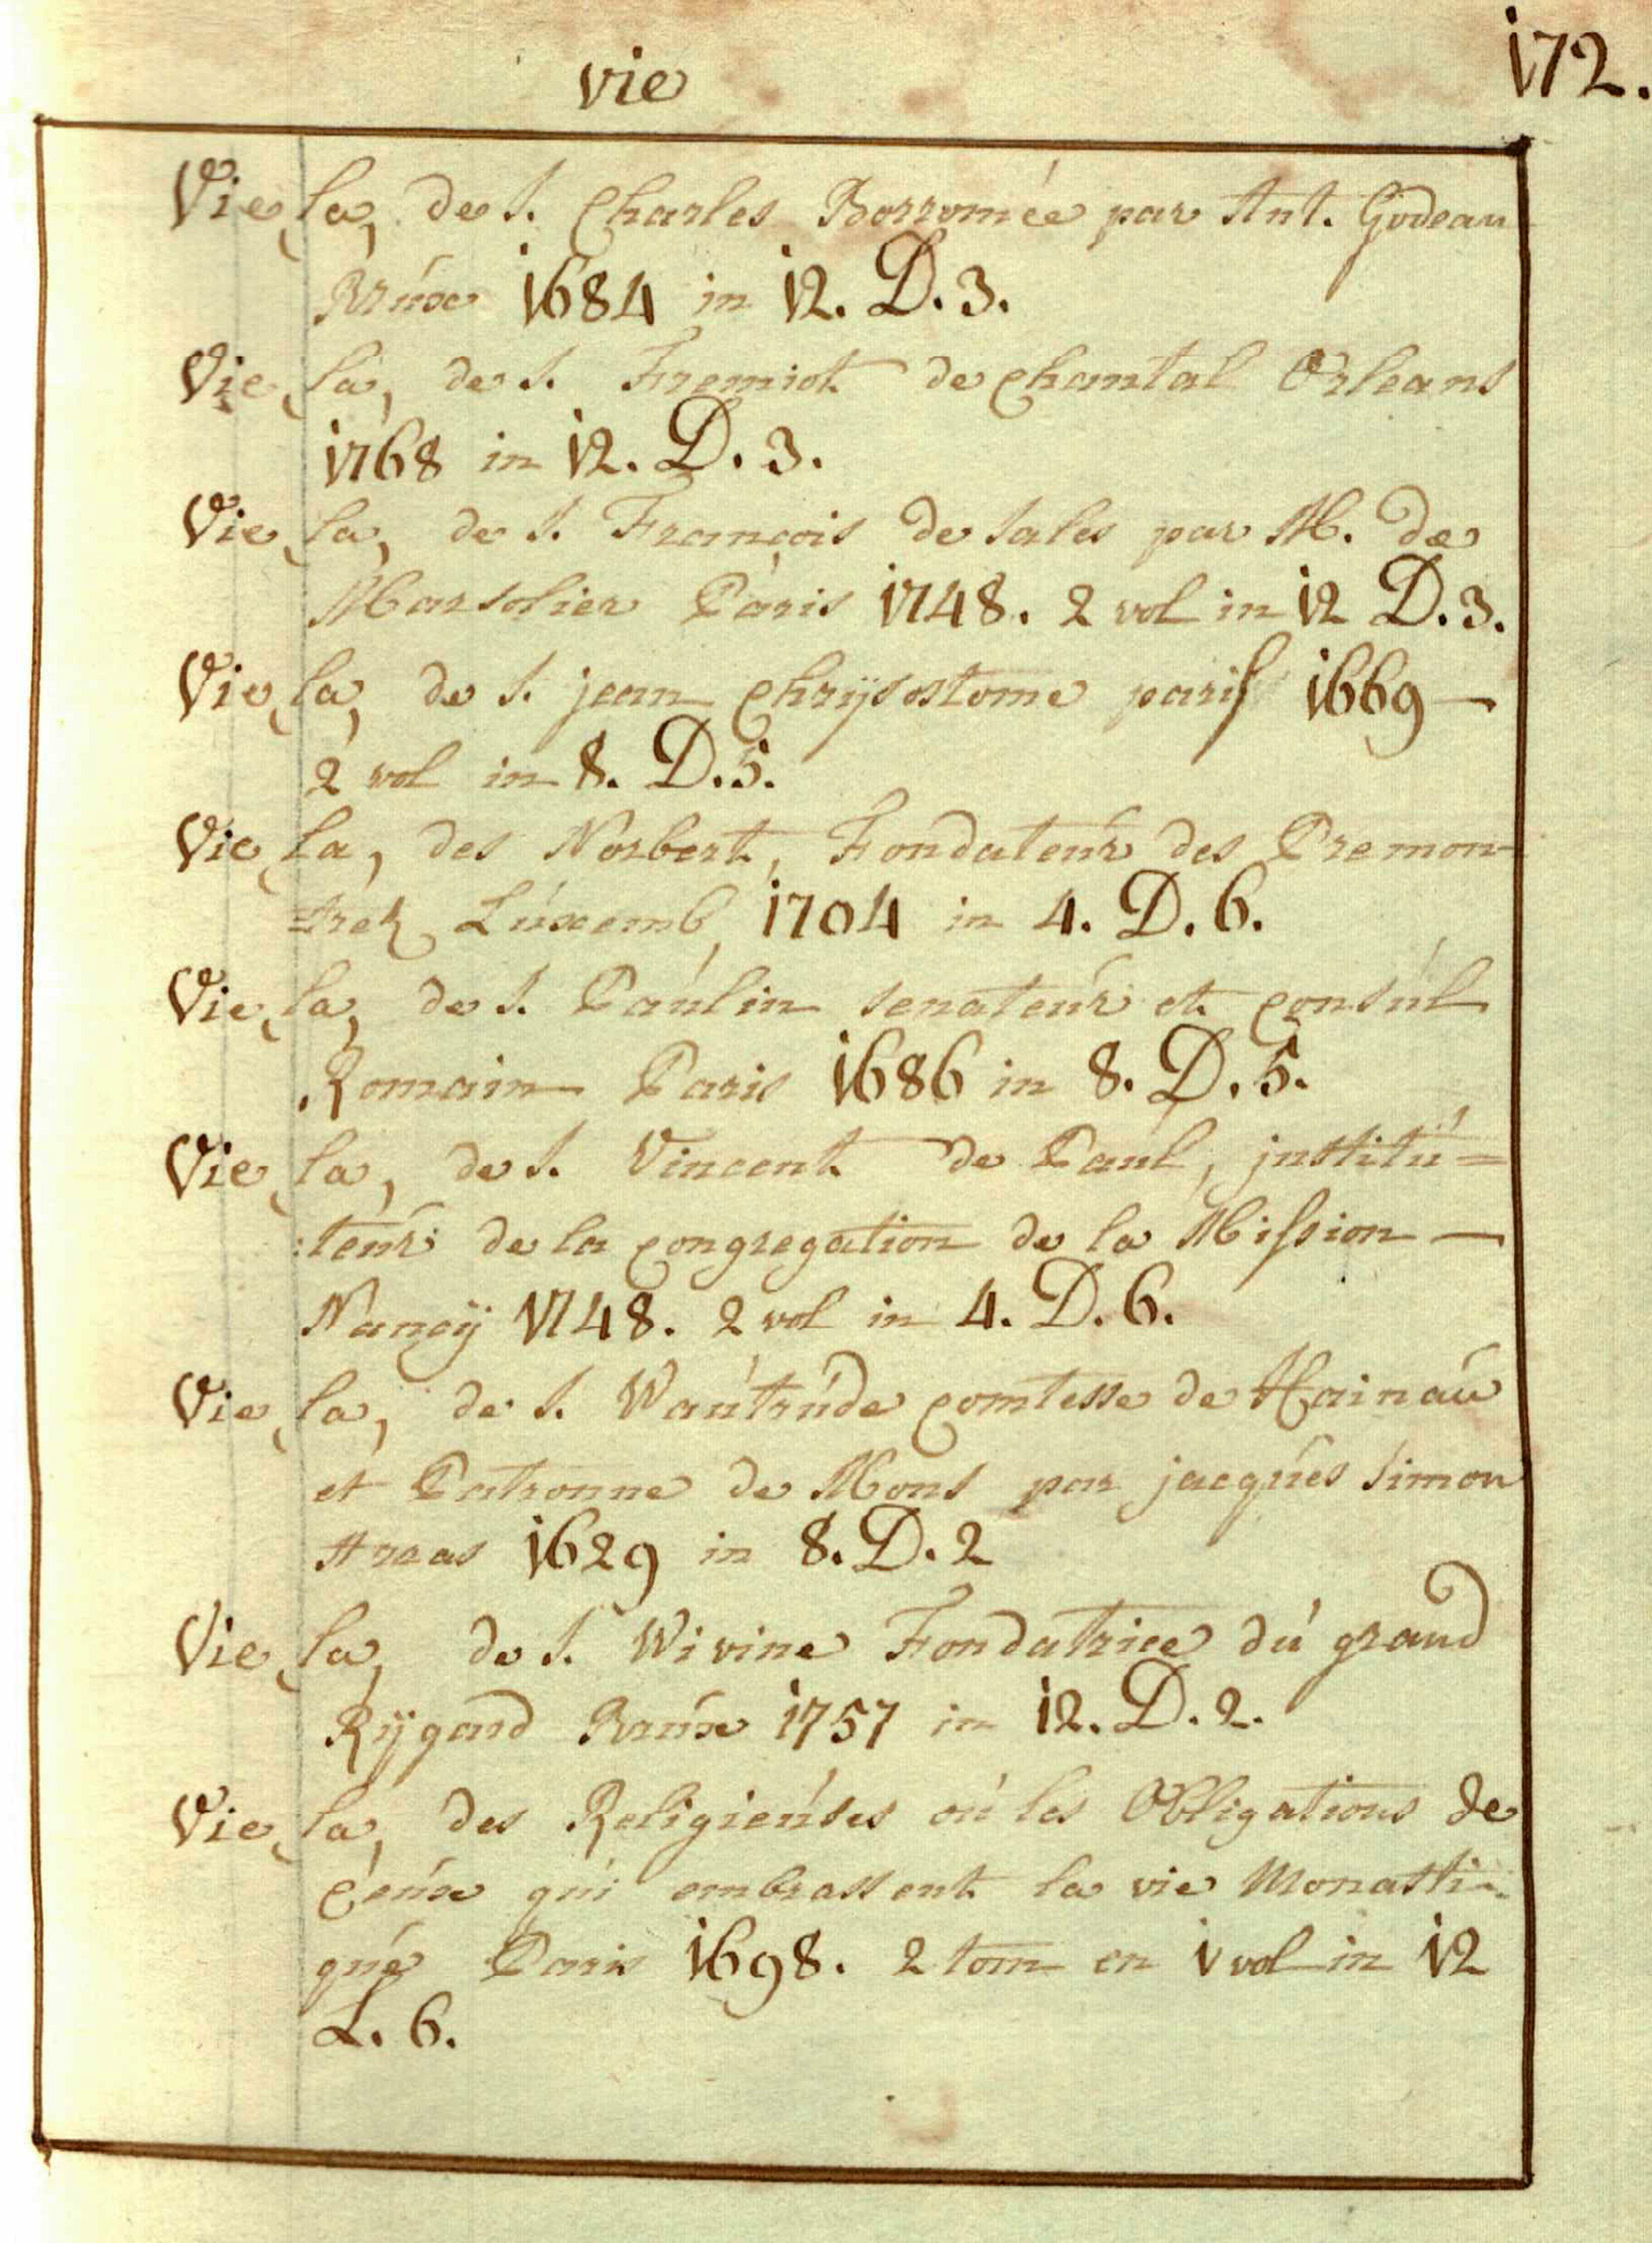 vie
172.
Vie, la, de S. Charles Borromée par Ant. Godeau
Brúx 1684 in 12. D. 3.
Vie, la, de S. Fremiot de Chantal Orleans
1768 in 12. D. 3.
Vie, la, de S. François de Sales par M. de
Marsolier Paris 1748. 2 vol in 12 D. 3.
Vie, la, de S. jean Chrÿsostome paris 1669 —
2 vol in 8. D. 5.
Vie, la, des Norbert, Fondateúr des Premon-
=trez, Lúxemb, 1704 in 4. D. 6.
Vie, la, de S. Paúlin senateúr et consúl
Romain Paris 1686 in 8. D. 5.
Vie, la, de S. Vincent de Paúl, institú=
:teúr de la congregation de la Mission —
Nancÿ 1748. 2 vol in 4. D. 6.
Vie, la, de S. Waútrúde comtesse de Hainaú
et Patronne de Mons par jacqúes Simon
Arras 1629 in 8. D. 2
Vie, la, de S. Wivine Fondatrice dú grand
Rÿgard Brúx 1757 in 12. D. 2.
Vie, la, des Religieúses oú les Obligations de
Ceúx qúi embrassent la vie Monasti-
qúe Paris 1698. 2 tom en 1 vol in 12
L. 6.